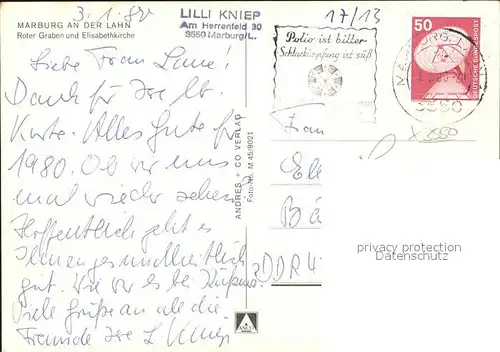 3.1.80
MARBURG AN DER LAHN
Roter Graben und Elisabethkirche
LILLI KNIEP
Am Herrenfeld 30
3550 Marburg/L.
17/13
Polio ist bitter
Schluckimpfung ist süß
50
DEUTSCHE BUNDESPOST
3550
Liebe Frau
Dank für Ihre lb.
Karte. Alles Gute für
1980. Ob wir uns
mal wieder sehen
Hoffentlich geht es
Ihnen gesundheitlich
gut. Wie war es bei
Viele Grüße an alle die
Freunde Ihre L. Kniep
ANDRES + CO VERLAG
Foto-Nr. M 45/8021
Frau
DDR 4
privacy protection
Datenschutz